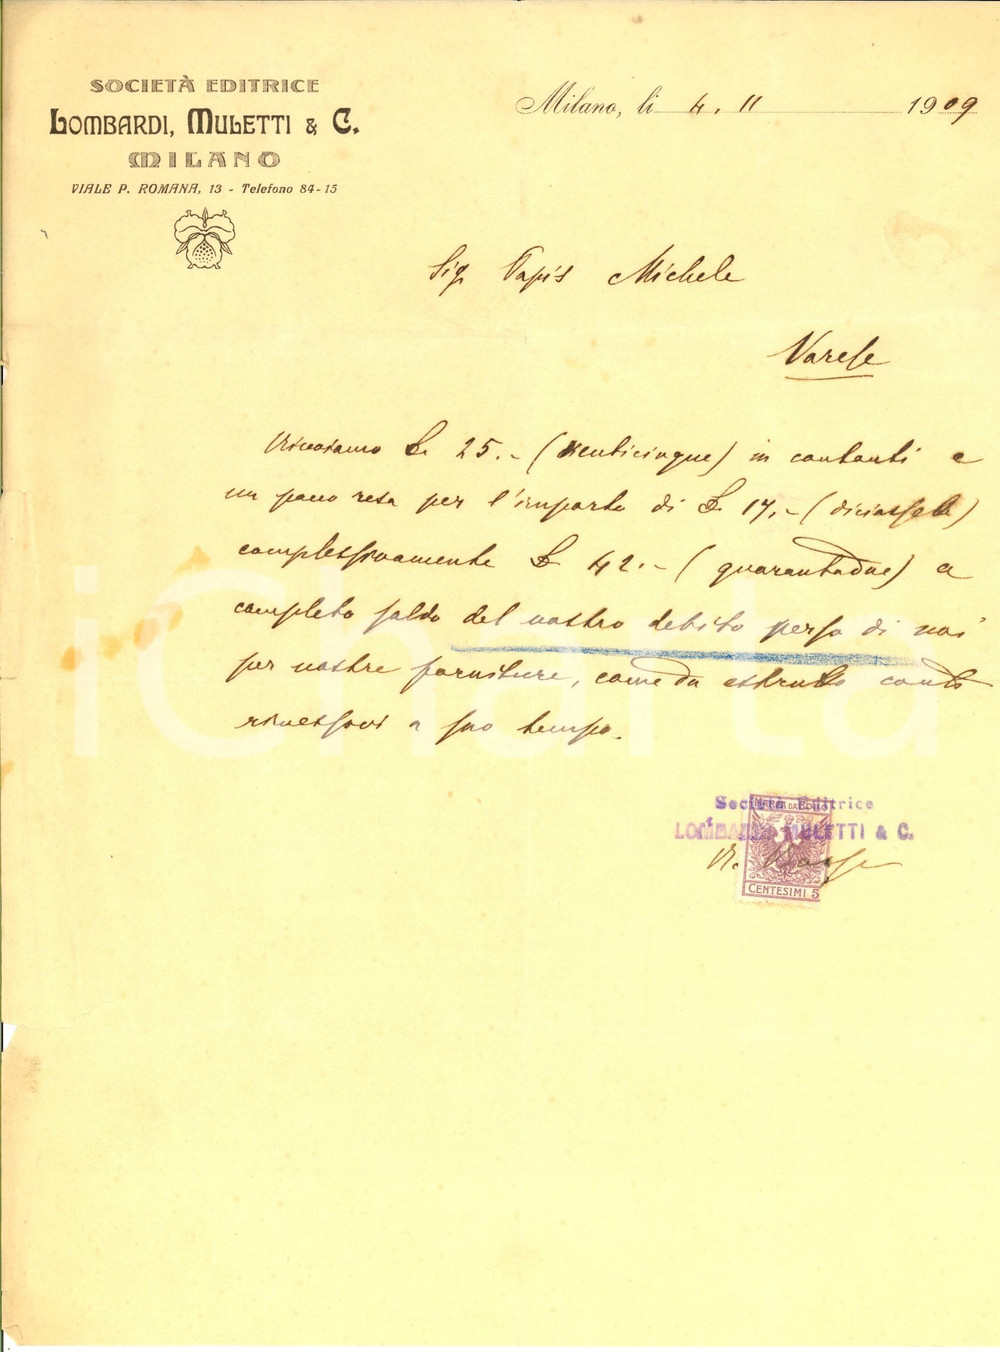 SOCIETÀ EDITRICE
LOMBARDI, MULETTI & C.
MILANO
VIALE P. ROMANA, 13 - Telefono 84-15
Milano, li 4. 11 1909
Sig. Papis Michele
Varese
Riceviamo L. 25.- (venticinque) in contanti e
un pacco resa per l'importo di L. 17.- (diciassette)
complessivamente L. 42.- (quarantadue) a
completo saldo del vostro debito verso di noi
per nostre forniture, come da estratto conto
rimessovi a suo tempo.
Società Editrice
LOMBARDI MULETTI & C.
MARCA DA BOLLO
CENTESIMI 5
iCharta